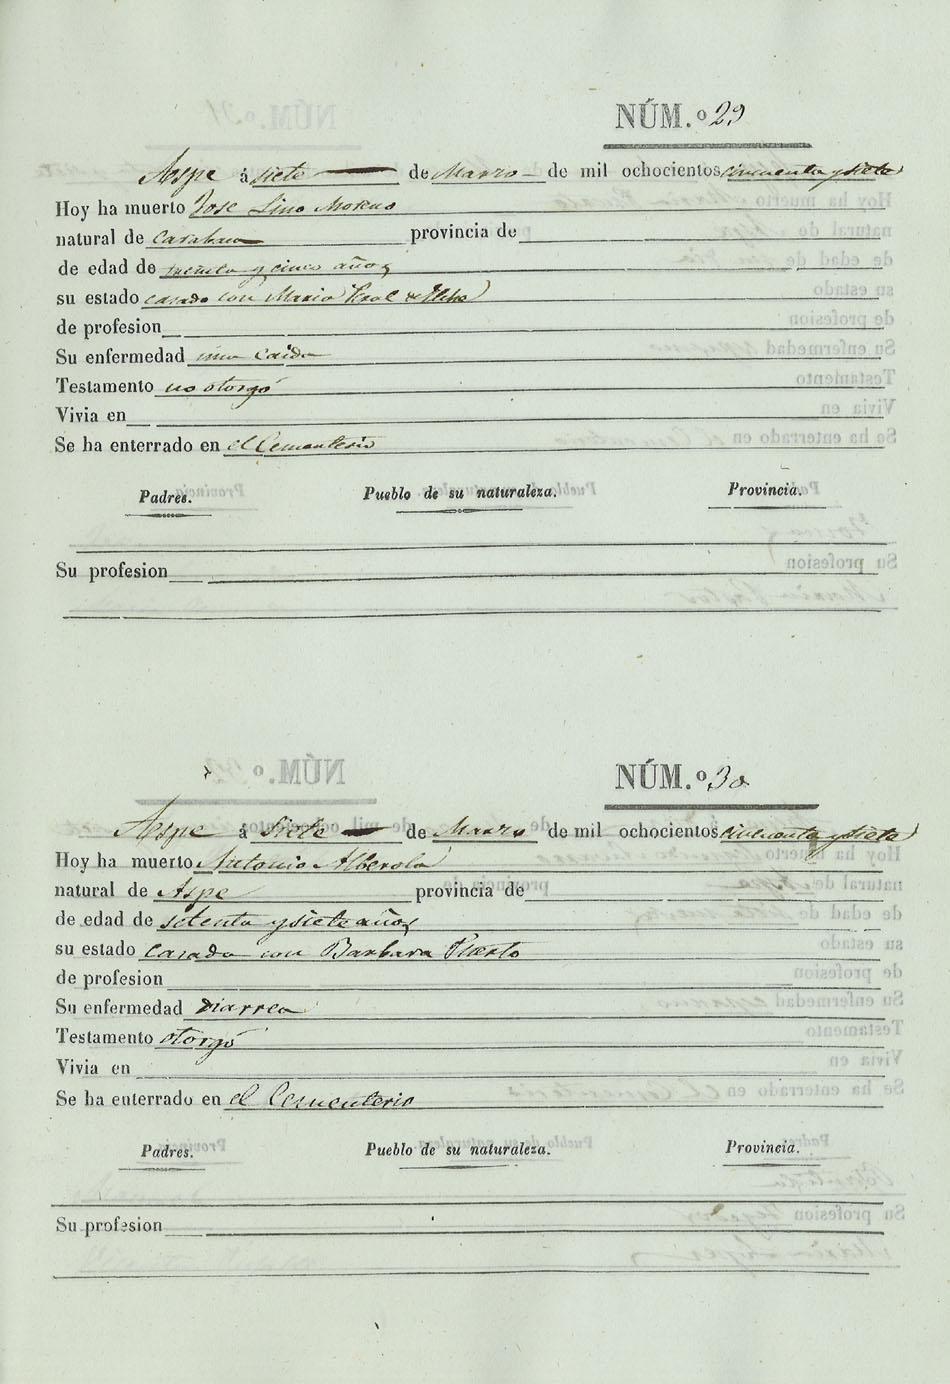 NÚM.º 29
Aspe á siete de Marzo de mil ochocientos cincuenta y siete
Hoy ha muerto Jose Lino Moreno
natural de
provincia de
de edad de treinta y cinco años
su estado casado con Maria
de profesion
Su enfermedad una caida
Testamento no otorgó
Vivia en
Se ha enterrado en el Cementerio
Padres. Pueblo de su naturaleza. Provincia.
Su profesion
NÚM.º 30
Aspe á siete de Marzo de mil ochocientos cincuenta y siete
Hoy ha muerto Antonio Alberola
natural de Aspe provincia de
de edad de setenta y siete años
su estado casado con Barbara Puerto
de profesion
Su enfermedad diarrea
Testamento otorgó
Vivia en
Se ha enterrado en el Cementerio
Padres. Pueblo de su naturaleza. Provincia.
Su profesion